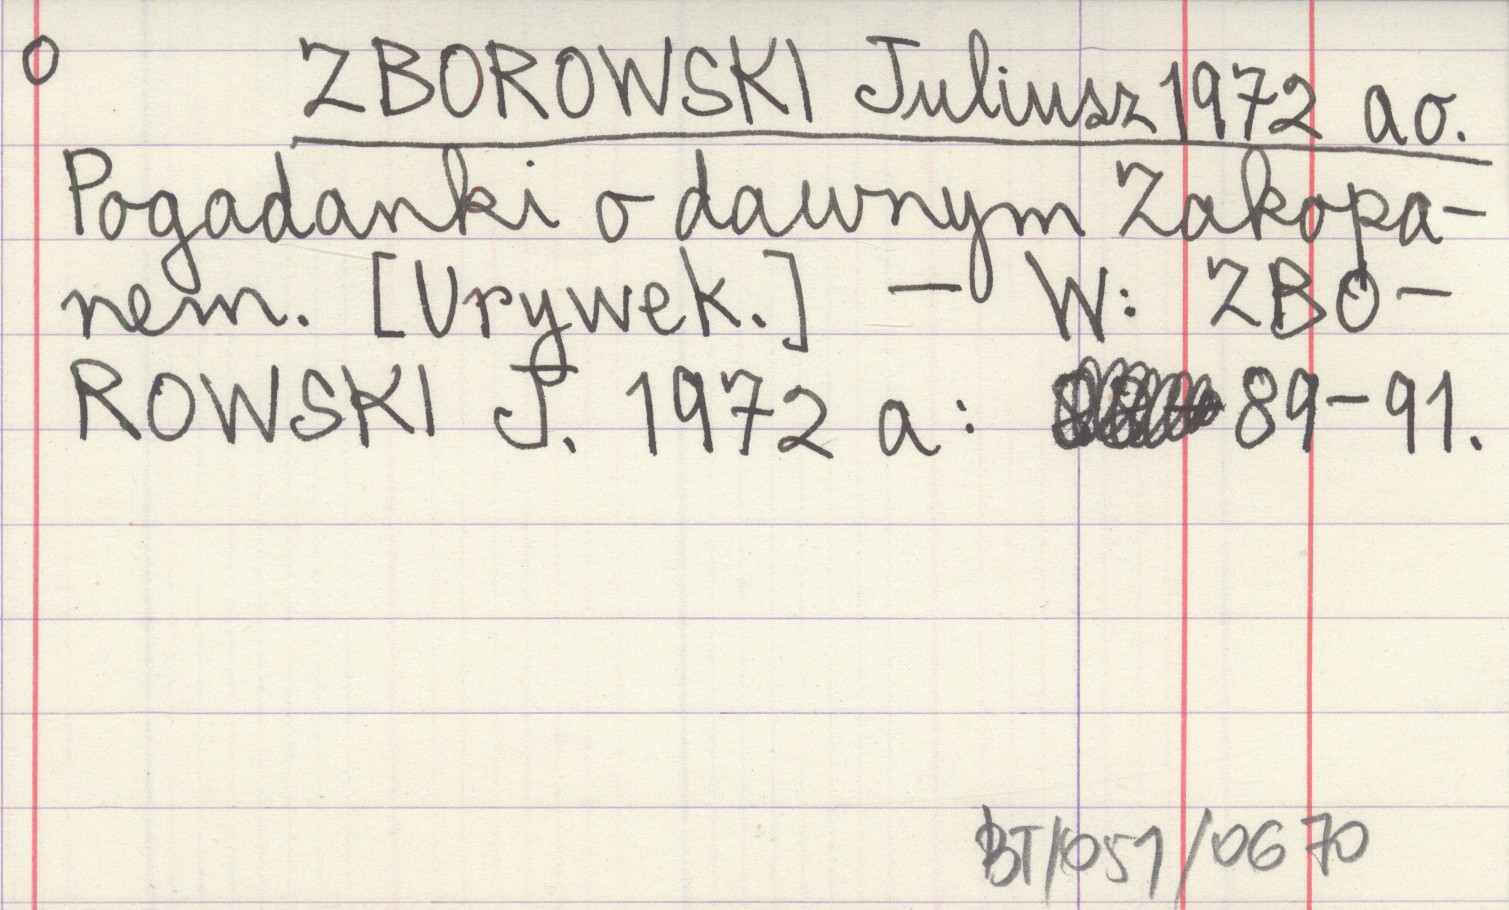 o ZBOROWSKI Juliusz 1972 ao.
Pogadanki o dawnym Zakopa-
nem. [Urywek.] - W: ZBO-
ROWSKI J. 1972 a: 89-91.
BT/051/0670